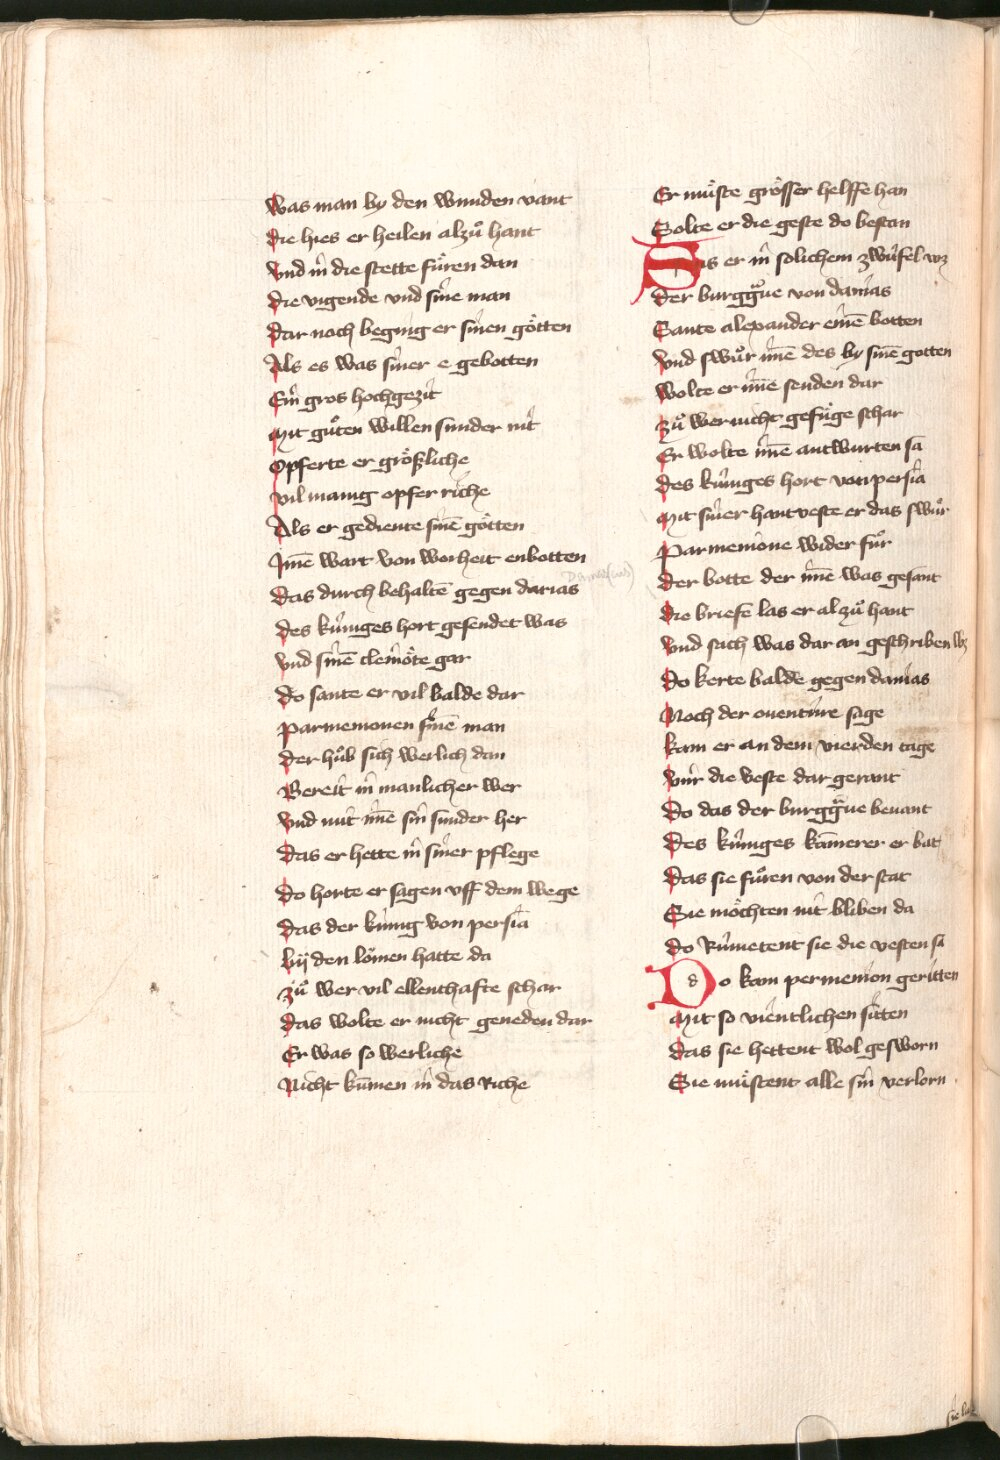 Was man by den wunden vant
die hies er heilen alzů hant
Vnd in die stette fůren dan
die vigende vnd sine man
dar noch beging er sinen götten
Als es was siner e gebotten
Ein gros hochgezit
Mit gůten willen sunder nit
Opferte er größliche
vil manig opfer riche
Als er gediente sinē götten
Imē wart von worheit enbotten
das durch behaltē gegen darias
des küniges hort gesendet was
vnd sinē cleinöte gar
do sante er vil balde dar
Parmenionen sinē man
der hůb sich werlich dan
Bereit in manlicher wer
vnd mit imē sin sunder her
das er hette in siner pflege
do horte er sagen vff dem wege
das der künig von persia
bÿ den löinen hatte da
zů wer vil ellenthafte schar
das wolte er nicht geneden dar
Er was so werliche
Nicht kūmen in das Riche
Er müste grösser helffe han
Solte er die geste do bestan
Das er in solichem zwifel wz
der burggrave von damas
Sante alexander einē botten
vnd swůr imē des by sinē gotten
wolte er imē senden dar
zů wer nicht gefüge schar
Er wolte imē antwurten sā
des küniges hort von persia
Mit siner hantveste er das swůr
Parmenione wider fůr
der botte der imē was gesant
die briefe las er alzů hant
vnd sach was dar an geschriben wz
do kerte balde gegen damas
Noch der ouentüre sage
kam er an dem vierden tage
vmr die veste dar gerant
do das der burggrave bevant
des küniges kāmerer er bat
das sie fůren von der stat
Sie möchten nit bliben da
do Rümetent sie die vesten sā
Do kam permenion geritten
Mit so vientlichen sitten
das sie hettent wol gesworn
Sie müstent alle sin verlorn